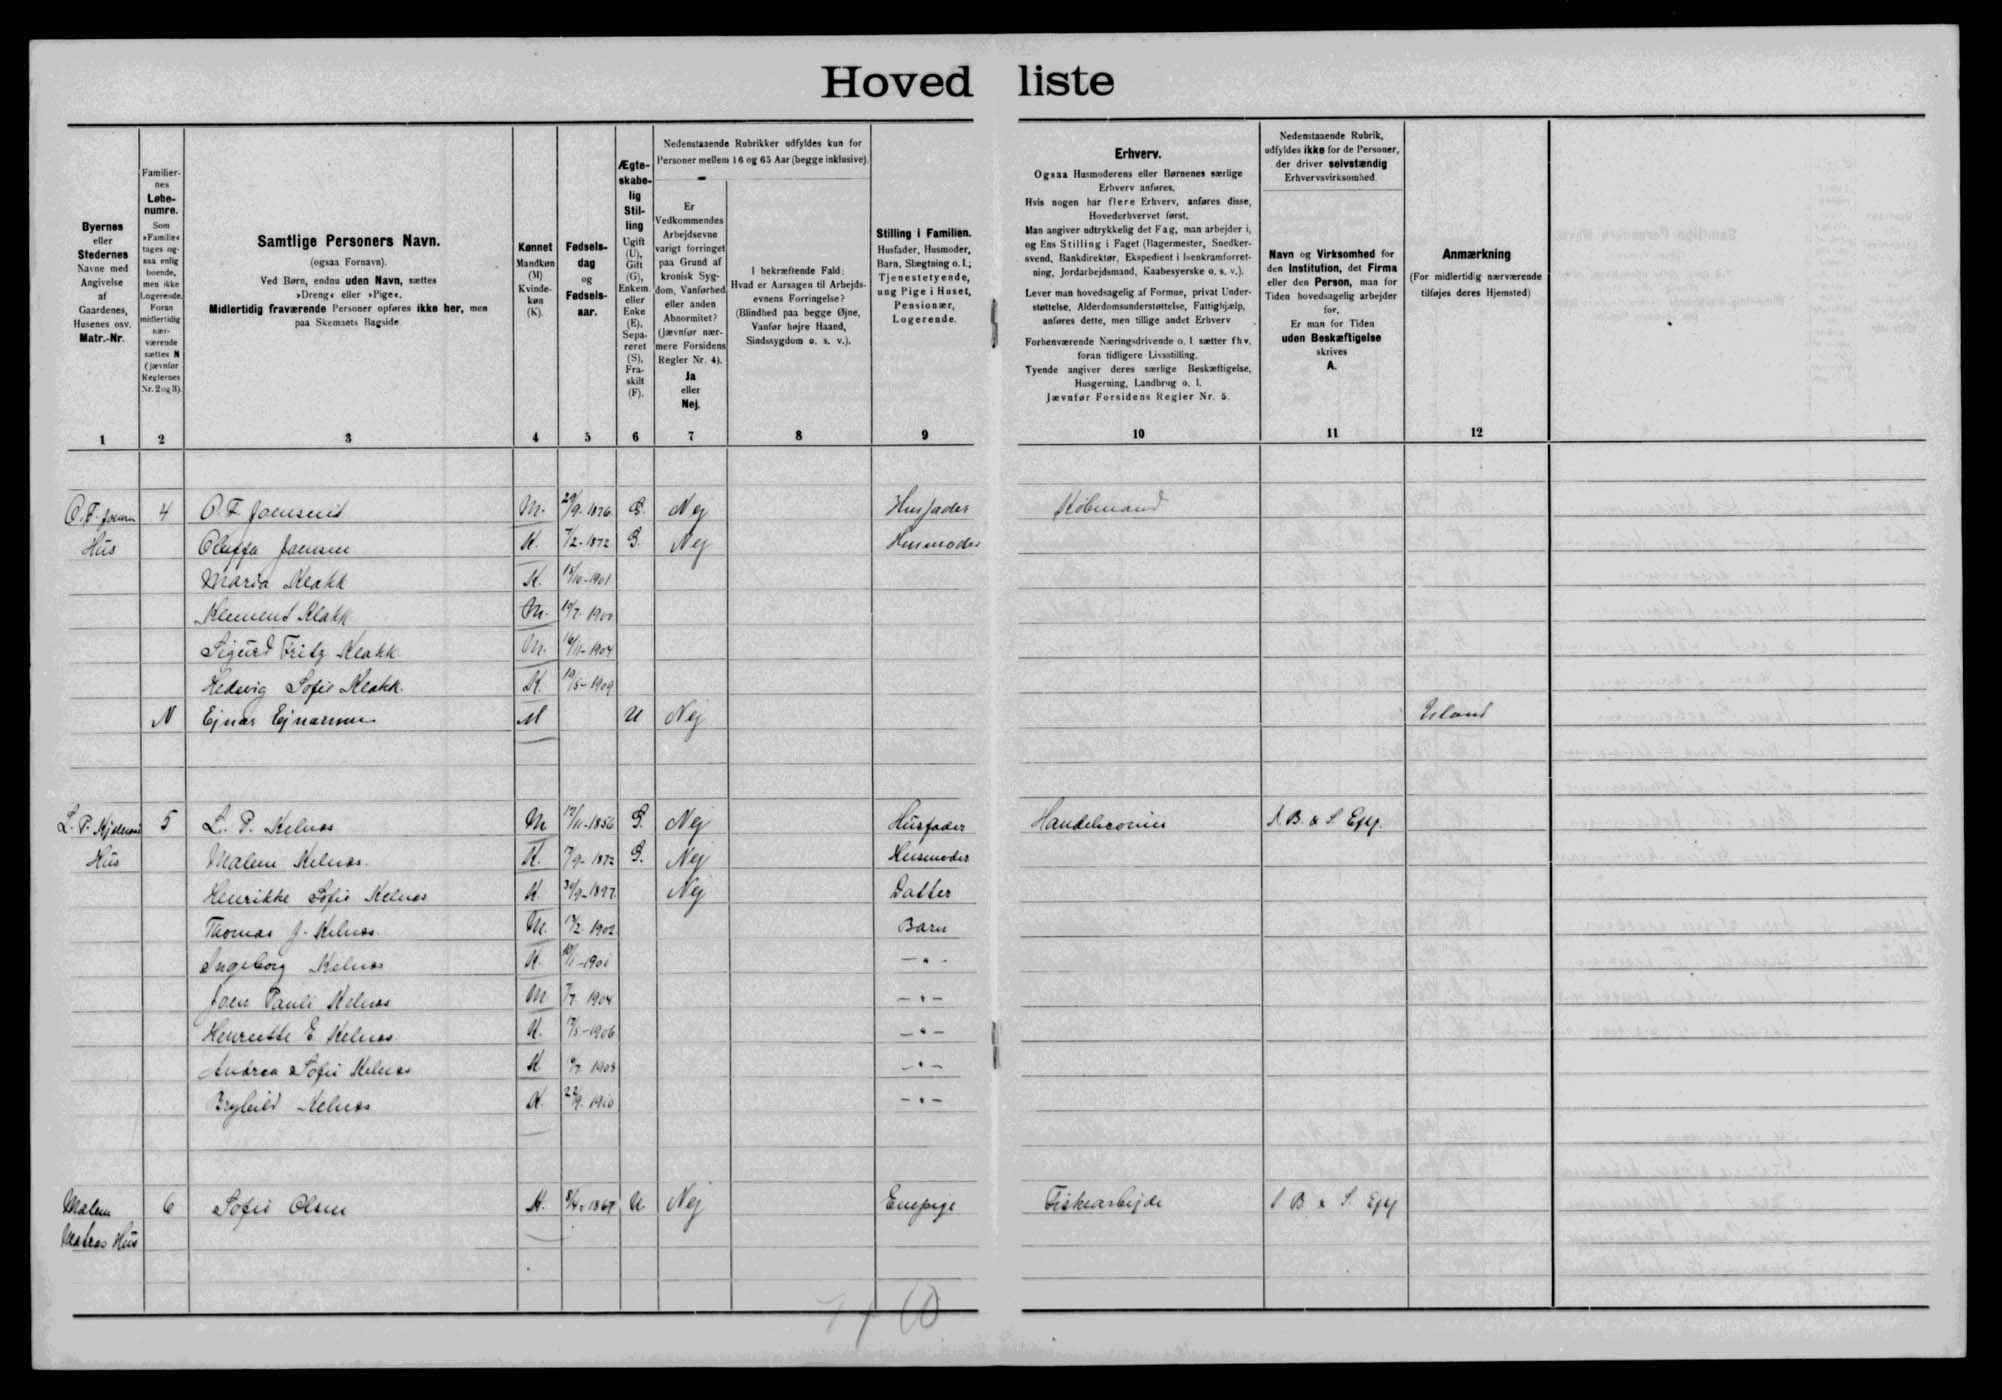 Hoved liste
Byernes
eller
Stedernes
Navne med
Angivelse
af
Gaardenes,
Husenes osv.
Matr.-Nr.
Familier-
nes
Løbe-
numre.
Som
»Familie«
tages og-
saa enlig
boende,
men ikke
Logerende.
Foran
midlertidig
nær-
værende
sættes N
(jævnfør
Reglernes
Nr. 2 og 3).
Samtlige Personers Navn.
(ogsaa Fornavn).
Ved Børn, endnu uden Navn, sættes
»Dreng« eller »Pige«.
Midlertidig fraværende Personer opføres ikke her, men
paa Skemaets Bagside.
Kønnet
Mandkøn
(M)
Kvinde-
køn
(K).
Fødsels-
dag
og
Fødsels-
aar.
Ægte-
skabe-
lig
Stil-
ling
Ugift
(U),
Gift
(G),
Enkem.
eller
Enke
(E),
Sepa-
reret
(S),
Fra-
skilt
(F).
Nedenstaaende Rubrikker udfyldes kun for
Personer mellem 16 og 65 Aar (begge inklusive).
Er
Vedkommendes
Arbejdsevne
varigt forringet
paa Grund af
kronisk Syg-
dom, Vanførhed
eller anden
Abnormitet?
(Jævnfør nær-
mere Forsidens
Regler Nr. 4).
Ja
eller
Nej.
I bekræftende Fald:
Hvad er Aarsagen til Arbejds-
evnens Forringelse?
(Blindhed paa begge Øjne,
Vanfør højre Haand,
Sindssygdom o. s. v.).
Stilling i Familien.
Husfader, Husmoder,
Barn, Slægtning o. l.;
Tjenestetyende,
ung Pige i Huset,
Pensionær,
Logerende.
Erhverv.
Ogsaa Husmoderens eller Børnenes særlige
Erhverv anføres.
Hvis nogen har flere Erhverv, anføres disse,
Hovederhvervet først.
Man angiver udtrykkelig det Fag, man arbejder i,
og Ens Stilling i Faget (Bagermester, Snedker-
svend, Bankdirektør, Ekspedient i Isenkramforret-
ning, Jordarbejdsmand, Kaabesyerske o. s. v.).
Lever man hovedsagelig af Formue, privat Under-
støttelse, Alderdomsunderstøttelse, Fattighjælp,
anføres dette, men tillige andet Erhverv
Forhenværende Næringsdrivende o. l. sætter fhv.
foran tidligere Livsstilling.
Tyende angiver deres særlige Beskæftigelse,
Husgerning, Landbrug o. l.
Jævnfør Forsidens Regler Nr. 5.
Nedenstaaende Rubrik,
udfyldes ikke for de Personer,
der driver selvstændig
Erhvervsvirksomhed.
Navn og Virksomhed for
den Institution, det Firma
eller den Person, man for
Tiden hovedsagelig arbejder
for.
Er man for Tiden
uden Beskæftigelse
skrives
A.
Anmærkning
(For midlertidig nærværende
tilføjes deres Hjemsted)
1 2 3 4 5 6 7 8 9 10 11 12
4 O. F. M. G. Nej Husfader Købmand
Hus K. 7/2-1872 G. Nej Husmoder
Maria Klakk K. 1901
Klement Klakk M. 1900
Sigurd Fritz Klakk. M. 16/11-1904
Hedvig Sofie Klakk. K. 1909
N Ejnar M U Nej Island
L. P. 5 L. P. Kelnæs M 1856 G. Nej Husfader A. B. & S.
Hus Malene Kelnæs. K. 1872 G. Nej Husmoder
Henrikke Sofie Kelnæs K. Nej Datter
Thomas J. Kelnæs. M. 1902 Barn
Ingeborg Kelnæs K. 1901 - " -
Joen Pauli Kelnæs M 1904 - " -
Henriette E Kelnæs. K. 1906 - " -
Andrea Sofie Kelnæs K 1908 - " -
Kelnæs K. 1910 - " -
Malene 6 Sofie Olsen K. U. Nej Enepige Fiskearbejde
Hus